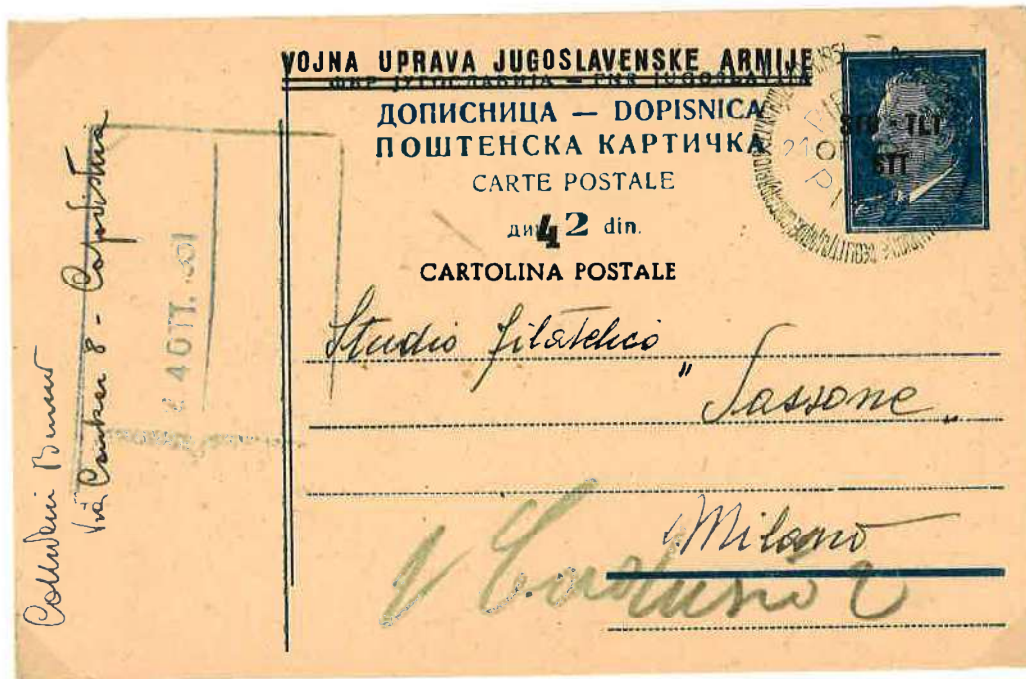 VOJNA UPRAVA JUGOSLAVENSKE ARMIJE
ФНР ЈУГОСЛАВИЈА — FNR JUGOSLAVIJA
ДОПИСНИЦА — DOPISNICA
ПОШТЕНСКА КАРТИЧКА
CARTE POSTALE
дин 4 2 din.
CARTOLINA POSTALE
STO - TLT
STT
Studio filatelico
" Sassone "
Milano
Via Cankar 8 - Capodistria
4 OTT.